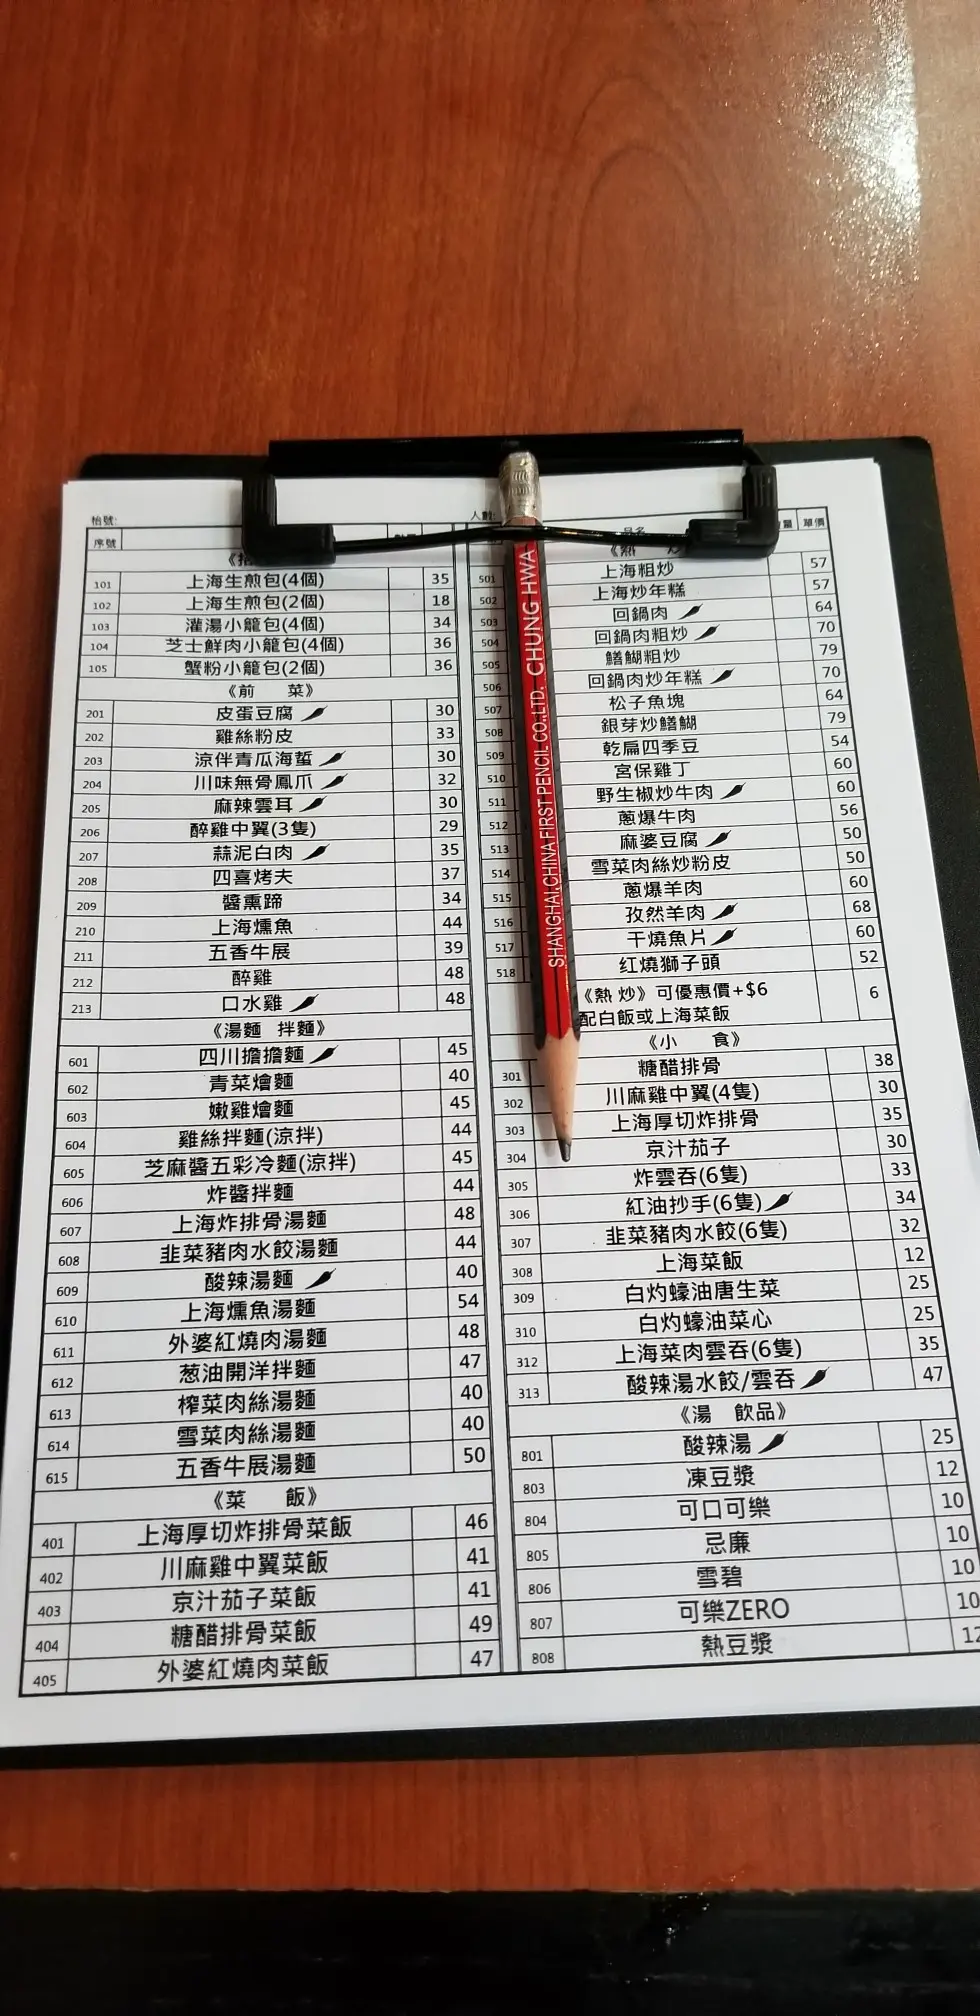 枱號:
人數:
序號
101 上海生煎包(4個) 35
102 上海生煎包(2個) 18
103 灌湯小籠包(4個) 34
104 芝士鮮肉小籠包(4個) 36
105 蟹粉小籠包(2個) 36
《前 菜》
201 皮蛋豆腐 30
202 雞絲粉皮 33
203 涼伴青瓜海蜇 30
204 川味無骨鳳爪 32
205 麻辣雲耳 30
206 醉雞中翼(3隻) 29
207 蒜泥白肉 35
208 四喜烤夫 37
209 醬熏蹄 34
210 上海燻魚 44
211 五香牛展 39
212 醉雞 48
213 口水雞 48
《湯麵 拌麵》
601 四川擔擔麵 45
602 青菜燴麵 40
603 嫩雞燴麵 45
604 雞絲拌麵(涼拌) 44
605 芝麻醬五彩冷麵(涼拌) 45
606 炸醬拌麵 44
607 上海炸排骨湯麵 48
608 韭菜豬肉水餃湯麵 44
609 酸辣湯麵 40
610 上海燻魚湯麵 54
611 外婆紅燒肉湯麵 48
612 葱油開洋拌麵 47
613 榨菜肉絲湯麵 40
614 雪菜肉絲湯麵 40
615 五香牛展湯麵 50
《菜 飯》
401 上海厚切炸排骨菜飯 46
402 川麻雞中翼菜飯 41
403 京汁茄子菜飯 41
404 糖醋排骨菜飯 49
405 外婆紅燒肉菜飯 47
品名 量 單價
《熱 炒
501 上海粗炒 57
502 上海炒年糕 57
503 回鍋肉 64
504 回鍋肉粗炒 70
505 鱔鰗粗炒 79
506 回鍋肉炒年糕 70
507 松子魚塊 64
508 銀芽炒鱔鰗 79
509 乾扁四季豆 54
510 宮保雞丁 60
511 野生椒炒牛肉 60
512 蔥爆牛肉 56
513 麻婆豆腐 50
514 雪菜肉絲炒粉皮 50
515 蔥爆羊肉 60
516 孜然羊肉 68
517 干燒魚片 60
518 红燒獅子頭 52
《熱炒》可優惠價+$6
配白飯或上海菜飯 6
《小 食》
301 糖醋排骨 38
302 川麻雞中翼(4隻) 30
303 上海厚切炸排骨 35
304 京汁茄子 30
305 炸雲吞(6隻) 33
306 紅油抄手(6隻) 34
307 韭菜豬肉水餃(6隻) 32
308 上海菜飯 12
309 白灼蠔油唐生菜 25
310 白灼蠔油菜心 25
312 上海菜肉雲吞(6隻) 35
313 酸辣湯水餃/雲吞 47
《湯 飲品》
801 酸辣湯 25
803 凍豆漿 12
804 可口可樂 10
805 忌廉 10
806 雪碧 10
807 可樂ZERO 10
808 熱豆漿 12
SHANGHAI.CHINA FIRST PENCIL CO.,LTD. CHUNG HWA